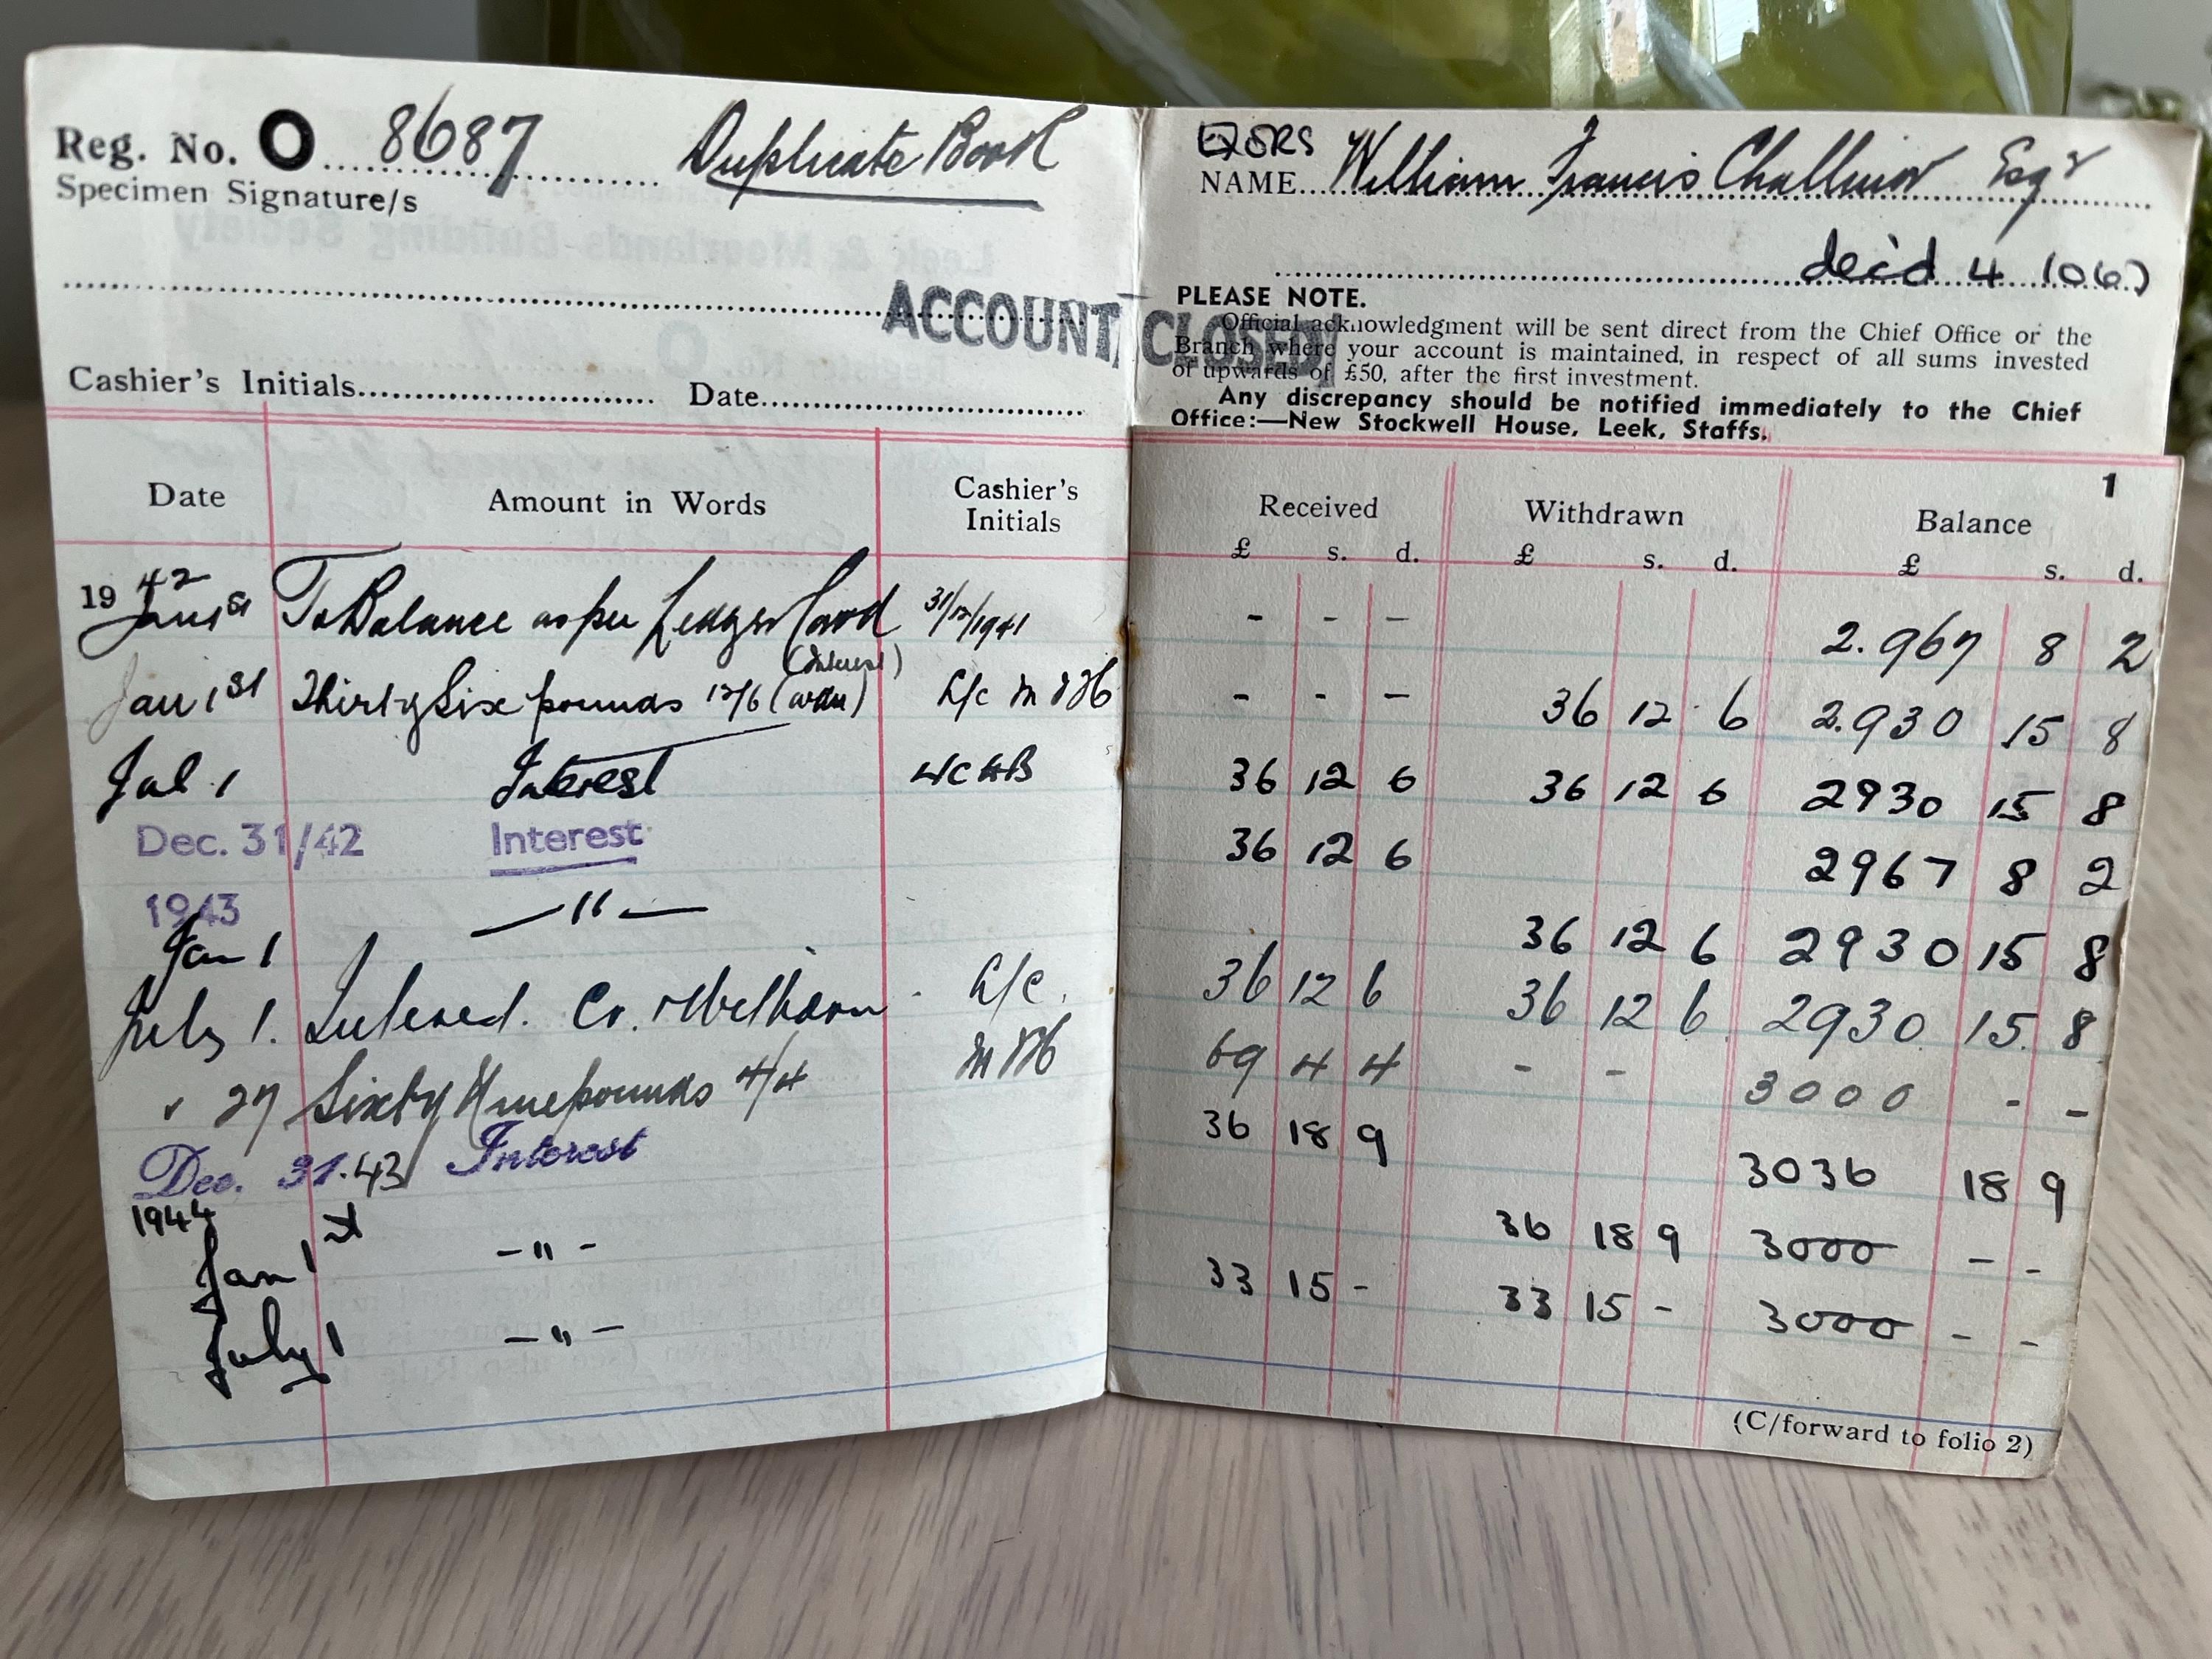 Reg. No. O 8687 Duplicate Book
Specimen Signature/s
ACCOUNT CLOSED
Cashier's Initials Date
EXORS
NAME William Francis Challinor Esqr
dec'd 4
PLEASE NOTE.
Official acknowledgment will be sent direct from the Chief Office or the
Branch where your account is maintained, in respect of all sums invested
of upwards of £50, after the first investment.
Any discrepancy should be notified immediately to the Chief
Office:—New Stockwell House, Leek, Staffs.
1
Date Amount in Words Cashier's Initials Received Withdrawn Balance
£ s. d. £ s. d. £ s. d.
1942
Jan 1st To Balance as per Ledger Card 31/12/1941 - - - 2.967 8 2
(Interest)
Jan 1st Thirty Six pounds 12/6 (wdn) - - - 36 12 6 2.930 15 8
Jul 1 Interest 36 12 6 36 12 6 2930 15 8
Dec. 31/42 Interest 36 12 6 2967 8 2
1943
Jan 1 —"— 36 12 6 2930 15 8
July 1. Interest. Cr. 36 12 6 36 12 6 2930 15 8
" 27 Sixty Nine pounds 4/4 69 4 4 - - 3000 - -
Dec. 31.43 Interest 36 18 9 3036 18 9
1944
Jan 1st -"- 36 18 9 3000 - -
July 1 -"- 33 15 - 33 15 - 3000 - -
(C/forward to folio 2)